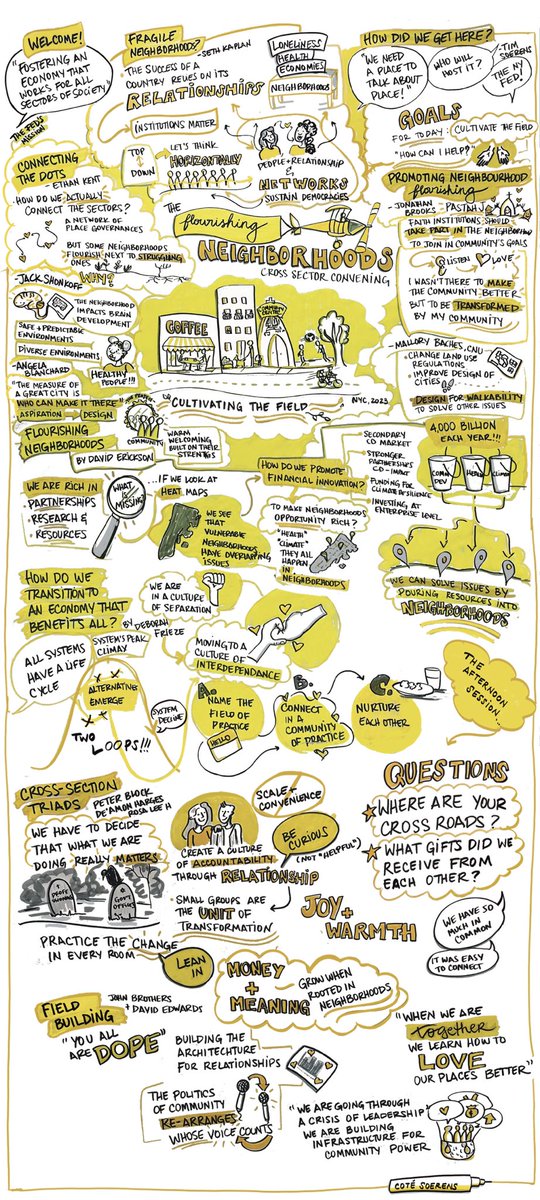 WELCOME!
"FOSTERING AN
ECONOMY THAT
WORKS FOR ALL
SECTORS OF SOCIETY"
THE FED'S
MISSION
FRAGILE
NEIGHBORHOODS?
- SETH KAPLAN
THE SUCCESS OF A
COUNTRY RELIES ON ITS
RELATIONSHIPS
INSTITUTIONS MATTER
TOP
DOWN
LET'S THINK
HORIZONTALLY
LONELINESS
HEALTH
ECONOMIES
NEIGHBORHOODS
PEOPLE + RELATIONSHIP
&
NETWORKS
SUSTAIN DEMOCRACIES
HOW DID WE GET HERE?
- TIM
SOERENS
"WE NEED
A PLACE TO
TALK ABOUT
PLACE!"
WHO WILL
HOST IT?
THE NY
FED!
GOALS
FOR TODAY: CULTIVATE THE FIELD
"HOW CAN I HELP?"
CONNECTING
THE DOTS
- ETHAN KENT
HOW DO WE ACTUALLY
CONNECT THE SECTORS?
A NETWORK OF
PLACE GOVERNANCES
BUT SOME NEIGHBORHOODS
FLOURISH NEXT TO STRUGGLING
ONES
THE
flourishing
NEIGHBORHOODS
CROSS SECTOR CONVENING
COFFEE
COMMUNITY
CENTRE
CULTIVATING THE FIELD
NYC, 2023
PROMOTING NEIGHBOURHOOD
flourishing
- JONATHAN
BROOKS
"PASTAH"
FAITH INSTITUTIONS SHOULD
TAKE PART IN THE NEIGHBORHOOD
TO JOIN IN COMMUNITY'S GOALS
LISTEN
LOVE
I WASN'T THERE TO MAKE
THE COMMUNITY BETTER
BUT TO BE TRANSFORMED
BY MY COMMUNITY
- MALLORY BACHES, CNU
• CHANGE LAND USE
REGULATIONS
• IMPROVE DESIGN OF
CITIES
DESIGN FOR WALKABILITY
TO SOLVE OTHER ISSUES
WHY?
- JACK SHONKOFF
THE NEIGHBORHOOD
IMPACTS BRAIN
DEVELOPMENT
SAFE + PREDICTABLE
ENVIRONMENTS
DIVERSE ENVIRONMENTS
- ANGELA
BLANCHARD
HEALTHY
PEOPLE!!!
THE MEASURE OF
A GREAT CITY IS
WHO CAN MAKE IT THERE
ASPIRATION
DESIGN
FLOURISHING
NEIGHBORHOODS
BY DAVID ERICKSON
COMMUNITY
WARM
WELCOMING
BUILT ON THEIR
STRENGTHS
WE ARE RICH IN
PARTNERSHIPS
RESEARCH &
RESOURCES
WHAT IS
MISSING?
...IF WE LOOK AT
HEAT MAPS
WE SEE
THAT
VULNERABLE
NEIGHBORHOODS
HAVE OVERLAPPING
ISSUES
HOW DO WE PROMOTE
FINANCIAL INNOVATION?
TO MAKE NEIGHBORHOODS
OPPORTUNITY RICH?
"HEALTH"
"CLIMATE"
THEY ALL
HAPPEN
IN
NEIGHBORHOODS
• SECONDARY
CD MARKET
• STRONGER
PARTNERSHIPS
• FUNDING FOR
CLIMATE RESILIENCE
• INVESTING AT
ENTERPRISE LEVEL
4,000 BILLION
EACH YEAR!!!
COMM
DEV
HEALTH
CLIMATE
WE CAN SOLVE ISSUES BY
POURING RESOURCES INTO
NEIGHBORHOODS
HOW DO WE
TRANSITION TO
AN ECONOMY THAT
BENEFITS ALL?
BY DEBORAH
FRIEZE
ALL SYSTEMS
HAVE A LIFE
CYCLE
SYSTEM'S PEAK
CLIMAX
ALTERNATIVE
EMERGE
SYSTEM
DECLINE
TWO
LOOPS!!!
WE ARE
IN A CULTURE
OF SEPARATION
MOVING TO A
CULTURE OF
INTERDEPENDANCE
A.
NAME THE
FIELD OF
PRACTICE
HELLO
B.
CONNECT
IN A
COMMUNITY
OF PRACTICE
C.
NURTURE
EACH OTHER
THE
AFTERNOON
SESSION...
CROSS-SECTION
TRIADS
PETER BLOCK
DE'AMON HARGES
ROSA LEE H
WE HAVE TO DECIDE
THAT WHAT WE ARE
DOING REALLY MATTERS
PRACTICE THE CHANGE
IN EVERY ROOM
LEAN
IN
SCALE +
CONVENIENCE
CREATE A CULTURE
OF ACCOUNTABILITY
THROUGH RELATIONSHIP
BE
CURIOUS
(NOT "HELPFUL")
SMALL GROUPS ARE
THE UNIT OF
TRANSFORMATION
JOY +
WARMTH
QUESTIONS
WHERE ARE YOUR
CROSS ROADS?
WHAT GIFTS DID WE
RECEIVE FROM
EACH OTHER?
WE HAVE SO
MUCH IN
COMMON
IT WAS EASY
TO CONNECT
MONEY
+
MEANING
GROW WHEN
ROOTED IN
NEIGHBORHOODS
FIELD
BUILDING
JOHN BROTHERS
+ DAVID EDWARDS
"YOU ALL
ARE DOPE"
BUILDING THE
ARCHITECHTURE
FOR RELATIONSHIPS
THE POLITICS
OF COMMUNITY
RE-ARRANGES
WHOSE VOICE COUNTS
"WHEN WE ARE
together
WE LEARN HOW TO
LOVE
OUR PLACES BETTER"
"WE ARE GOING THROUGH
A CRISIS OF LEADERSHIP
WE ARE BUILDING
INFRASTRUCTURE FOR
COMMUNITY POWER"
COTÉ SOERENS